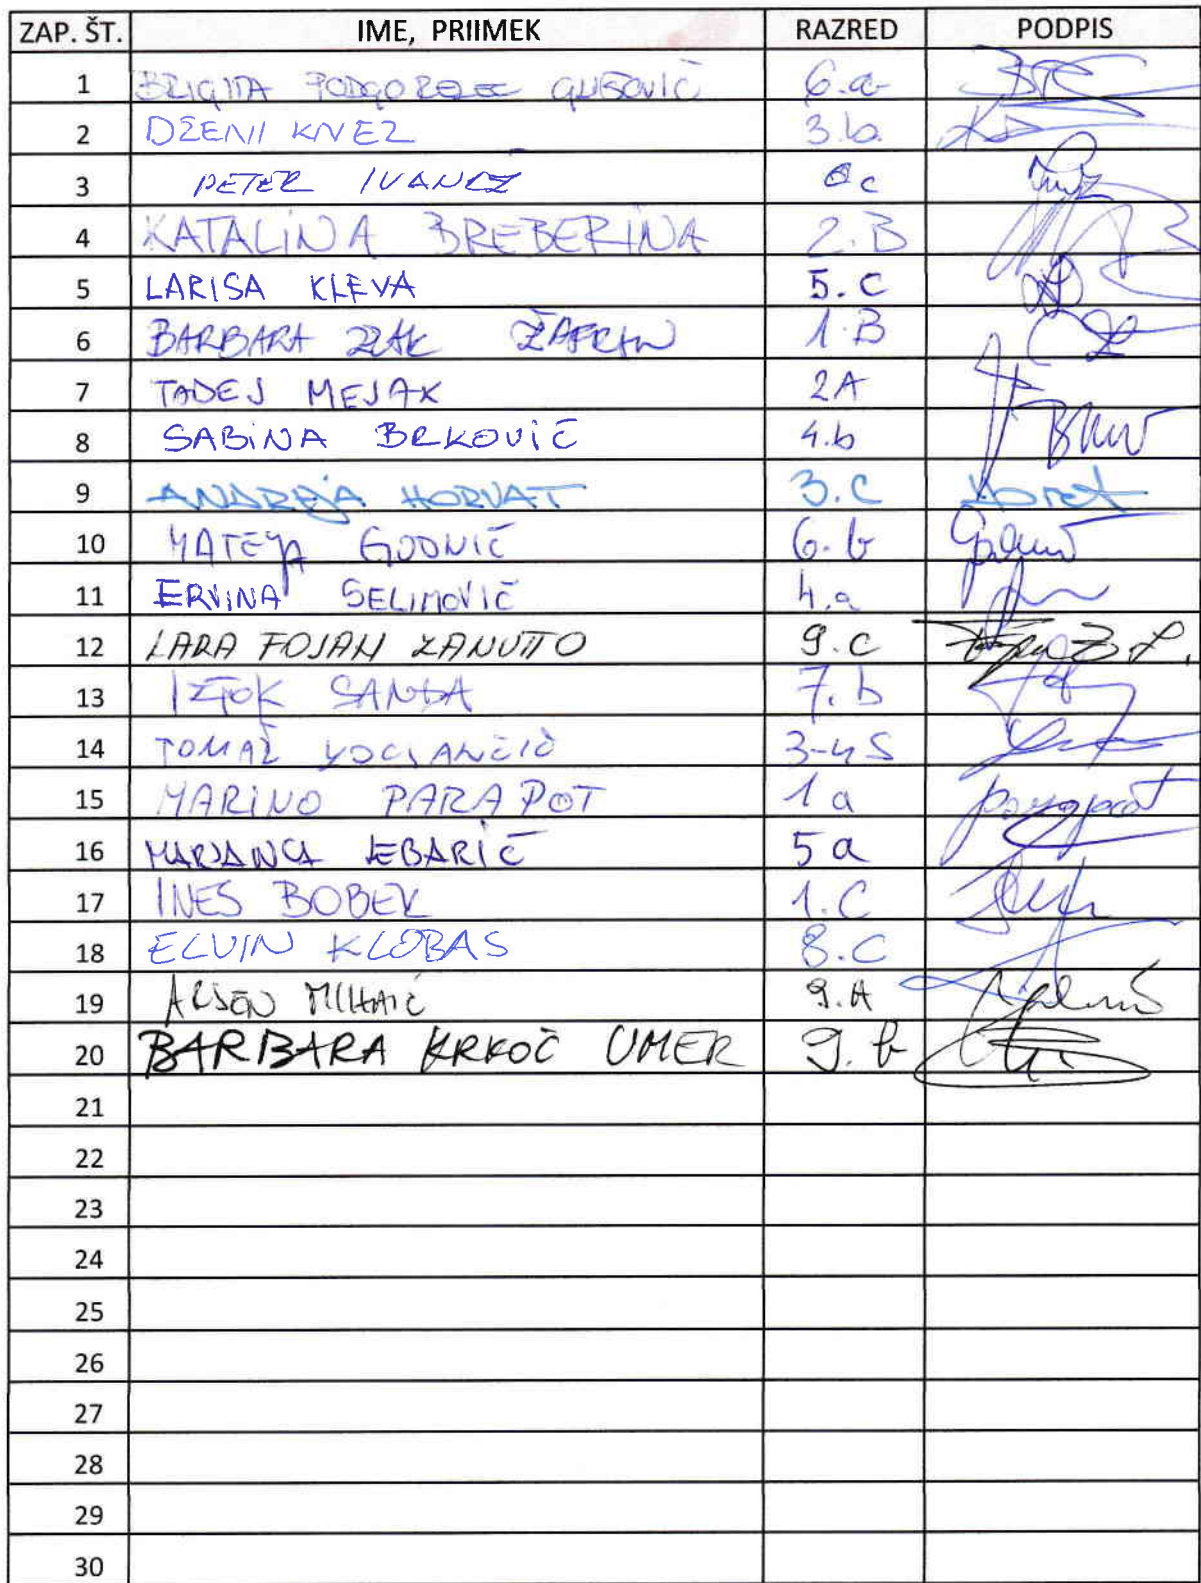 ZAP. ŠT. IME, PRIIMEK RAZRED PODPIS
1 BRIGITA PODGORELEC GLIBOVIČ 6.a
2 DŽENI KNEZ 3.b
3 PETER IVANČ c
4 KATALINA BREBERINA 2.B
5 LARISA KLEVA 5.C
6 BARBARA 1.B
7 TADEJ MEJAK 2A
8 SABINA BRKOVIČ 4.b
9 ANDREJA HORVAT 3.C Horvat
10 MATEJA GODNIČ 6.b
11 ERVINA SELIMOVIČ 4.a
12 LARA FOJAN ZANUTTO 9.C
13 IZTOK SANDA 7.b
14 TOMAŽ 3-4S
15 MARINO PARAPOT 1a Parapot
16 MARJANCA LEBARIČ 5a
17 INES BOBEK 1.C
18 ELVIN KLOBAS 8.C
19 ALSEN MIHAIĆ 9.A
20 BARBARA KRKOČ UMER 9.b
21
22
23
24
25
26
27
28
29
30